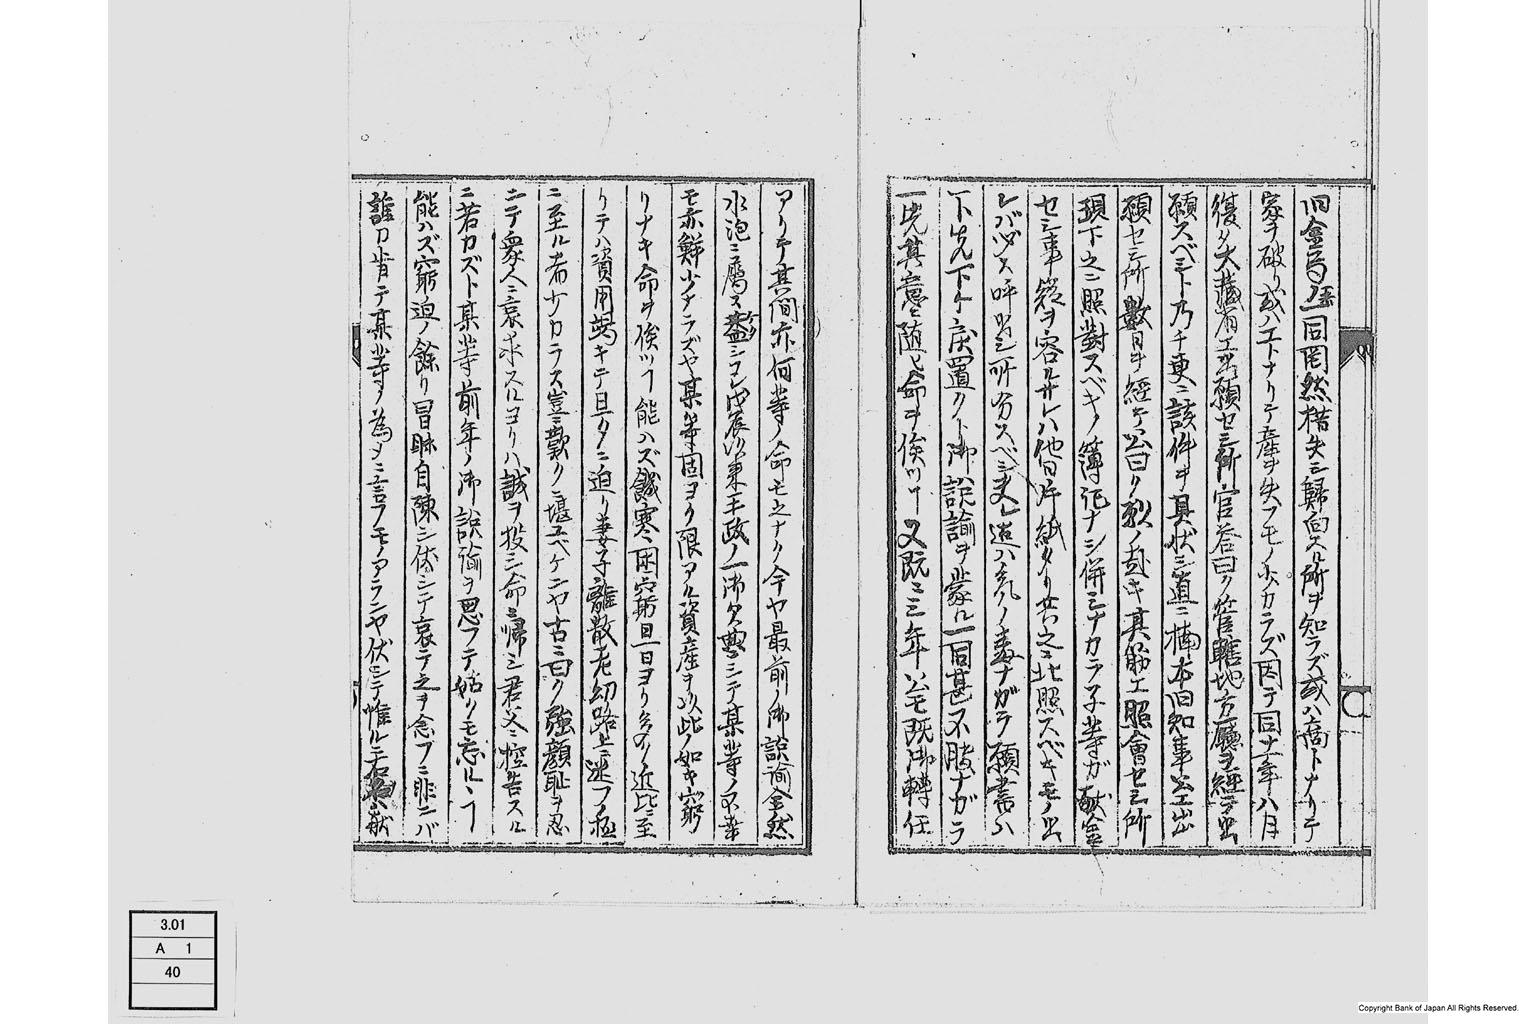 一同罔然措失シ歸向スル所ヲ知ラズ或ハ商トナリテ
家ヲ破リ或ハ工トナリテ産ヲ失フモノ少カラズ因テ同十一年八月
復タ大藏省エ出願セシ所官答曰ク管轄地方廳ヲ經テ出
願スベシト乃チ更ニ該件ヲ具状シ直ニ楠本旧知事公エ出
願セシ所數日ヲ經テ公曰ク其筋エ照會セシ所
現下之ニ照對スベキノ簿記ナシ併シナカラ子等ガ献金
セシ事ヲ容ルサレハ他日片紙タリ共之ニ比照スベキモノ出
レバ必ス呼出シ所分スベシ夫レ迄ハ氣ノ毒ナガラ願書ハ
下先下ケ戻置クト御説諭ヲ蒙ル一同甚不服ナガラ
一先其意ニ随ヒ命ヲ俟ツ又既ニ三年公モ既御轉任
アリテ其間亦何等ノ命モ之ナク今ヤ最前ノ御説諭全然
水泡ニ属ス蓋シコレ戊辰以来王政ノ一御欠典ニシテ某等ノ不幸
モ亦鮮少ナラズヤ某等固ヨリ限アル資産ヲ以此ノ如キ窮
リナキ命ヲ俟ツ能ハズ餓寒困窮旦一日ヨリ多ク近比ニ至
リテハ資用竭キテ旦夕ニ迫リ妻子離散老幼路上ニ迷フノ極
ニ至ル者少カラス豈ニ歎クニ堪ユベケンヤ古ニ曰ク強顔耻ヲ忍
ニテ衆人ニ哀求スルヨリハ誠ヲ投シ命ニ帰シ君父ニ控告スル
ニ若カズト某等前年ノ御説諭ヲ思フテ姑クモ忘ルヽ
能ハズ窮迫ノ餘リ冒昧自陳シ伏シテ哀テ之ヲ念フニ非ンバ
誰カ肯テ某等ノ為メニ言フモノアランヤ伏シテ惟ルニ
3.01
A 1
40
Copyright Bank of Japan All Rights Reserved.